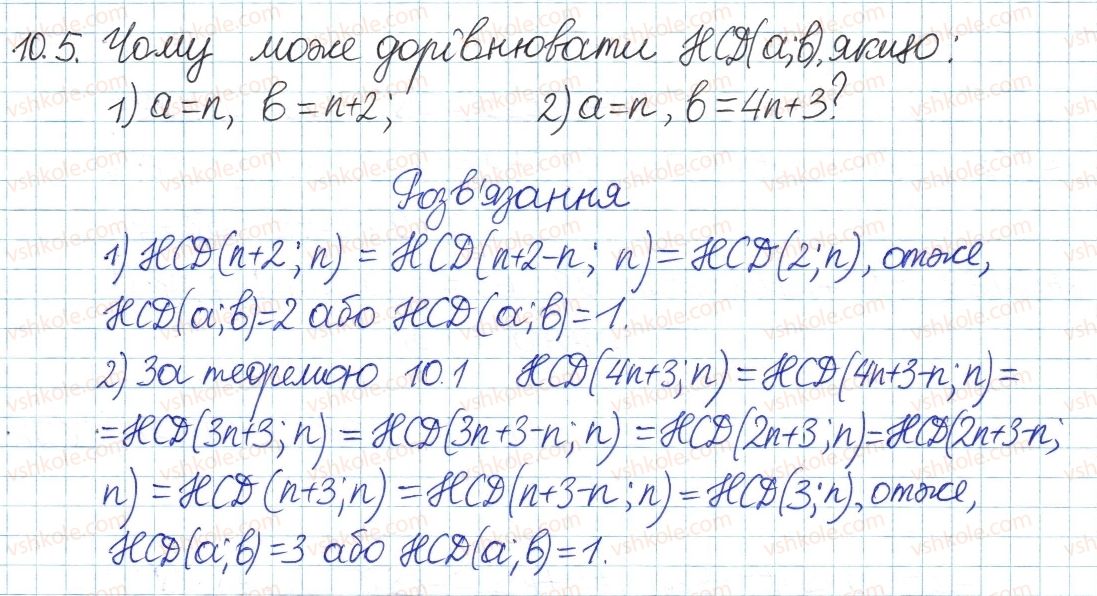 10.5. Чому може дорівнювати НСД(a;b), якщо:
1) a=n, b=n+2; 2) a=n, b=4n+3?
Розв'язання
1) НСД(n+2; n) = НСД(n+2-n; n) = НСД(2; n), отже,
НСД(a;b)=2 або НСД(a;b)=1.
2) За теоремою 10.1 НСД(4n+3; n) = НСД(4n+3-n; n) =
= НСД(3n+3; n) = НСД(3n+3-n; n) = НСД(2n+3; n) = НСД(2n+3-n;
n) = НСД(n+3; n) = НСД(n+3-n; n) = НСД(3; n), отже,
НСД(a;b)=3 або НСД(a;b)=1.
vshkole.com